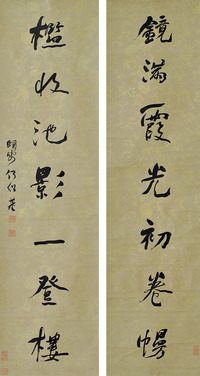 鏡滿霞光初卷幔
檻收池影一登樓